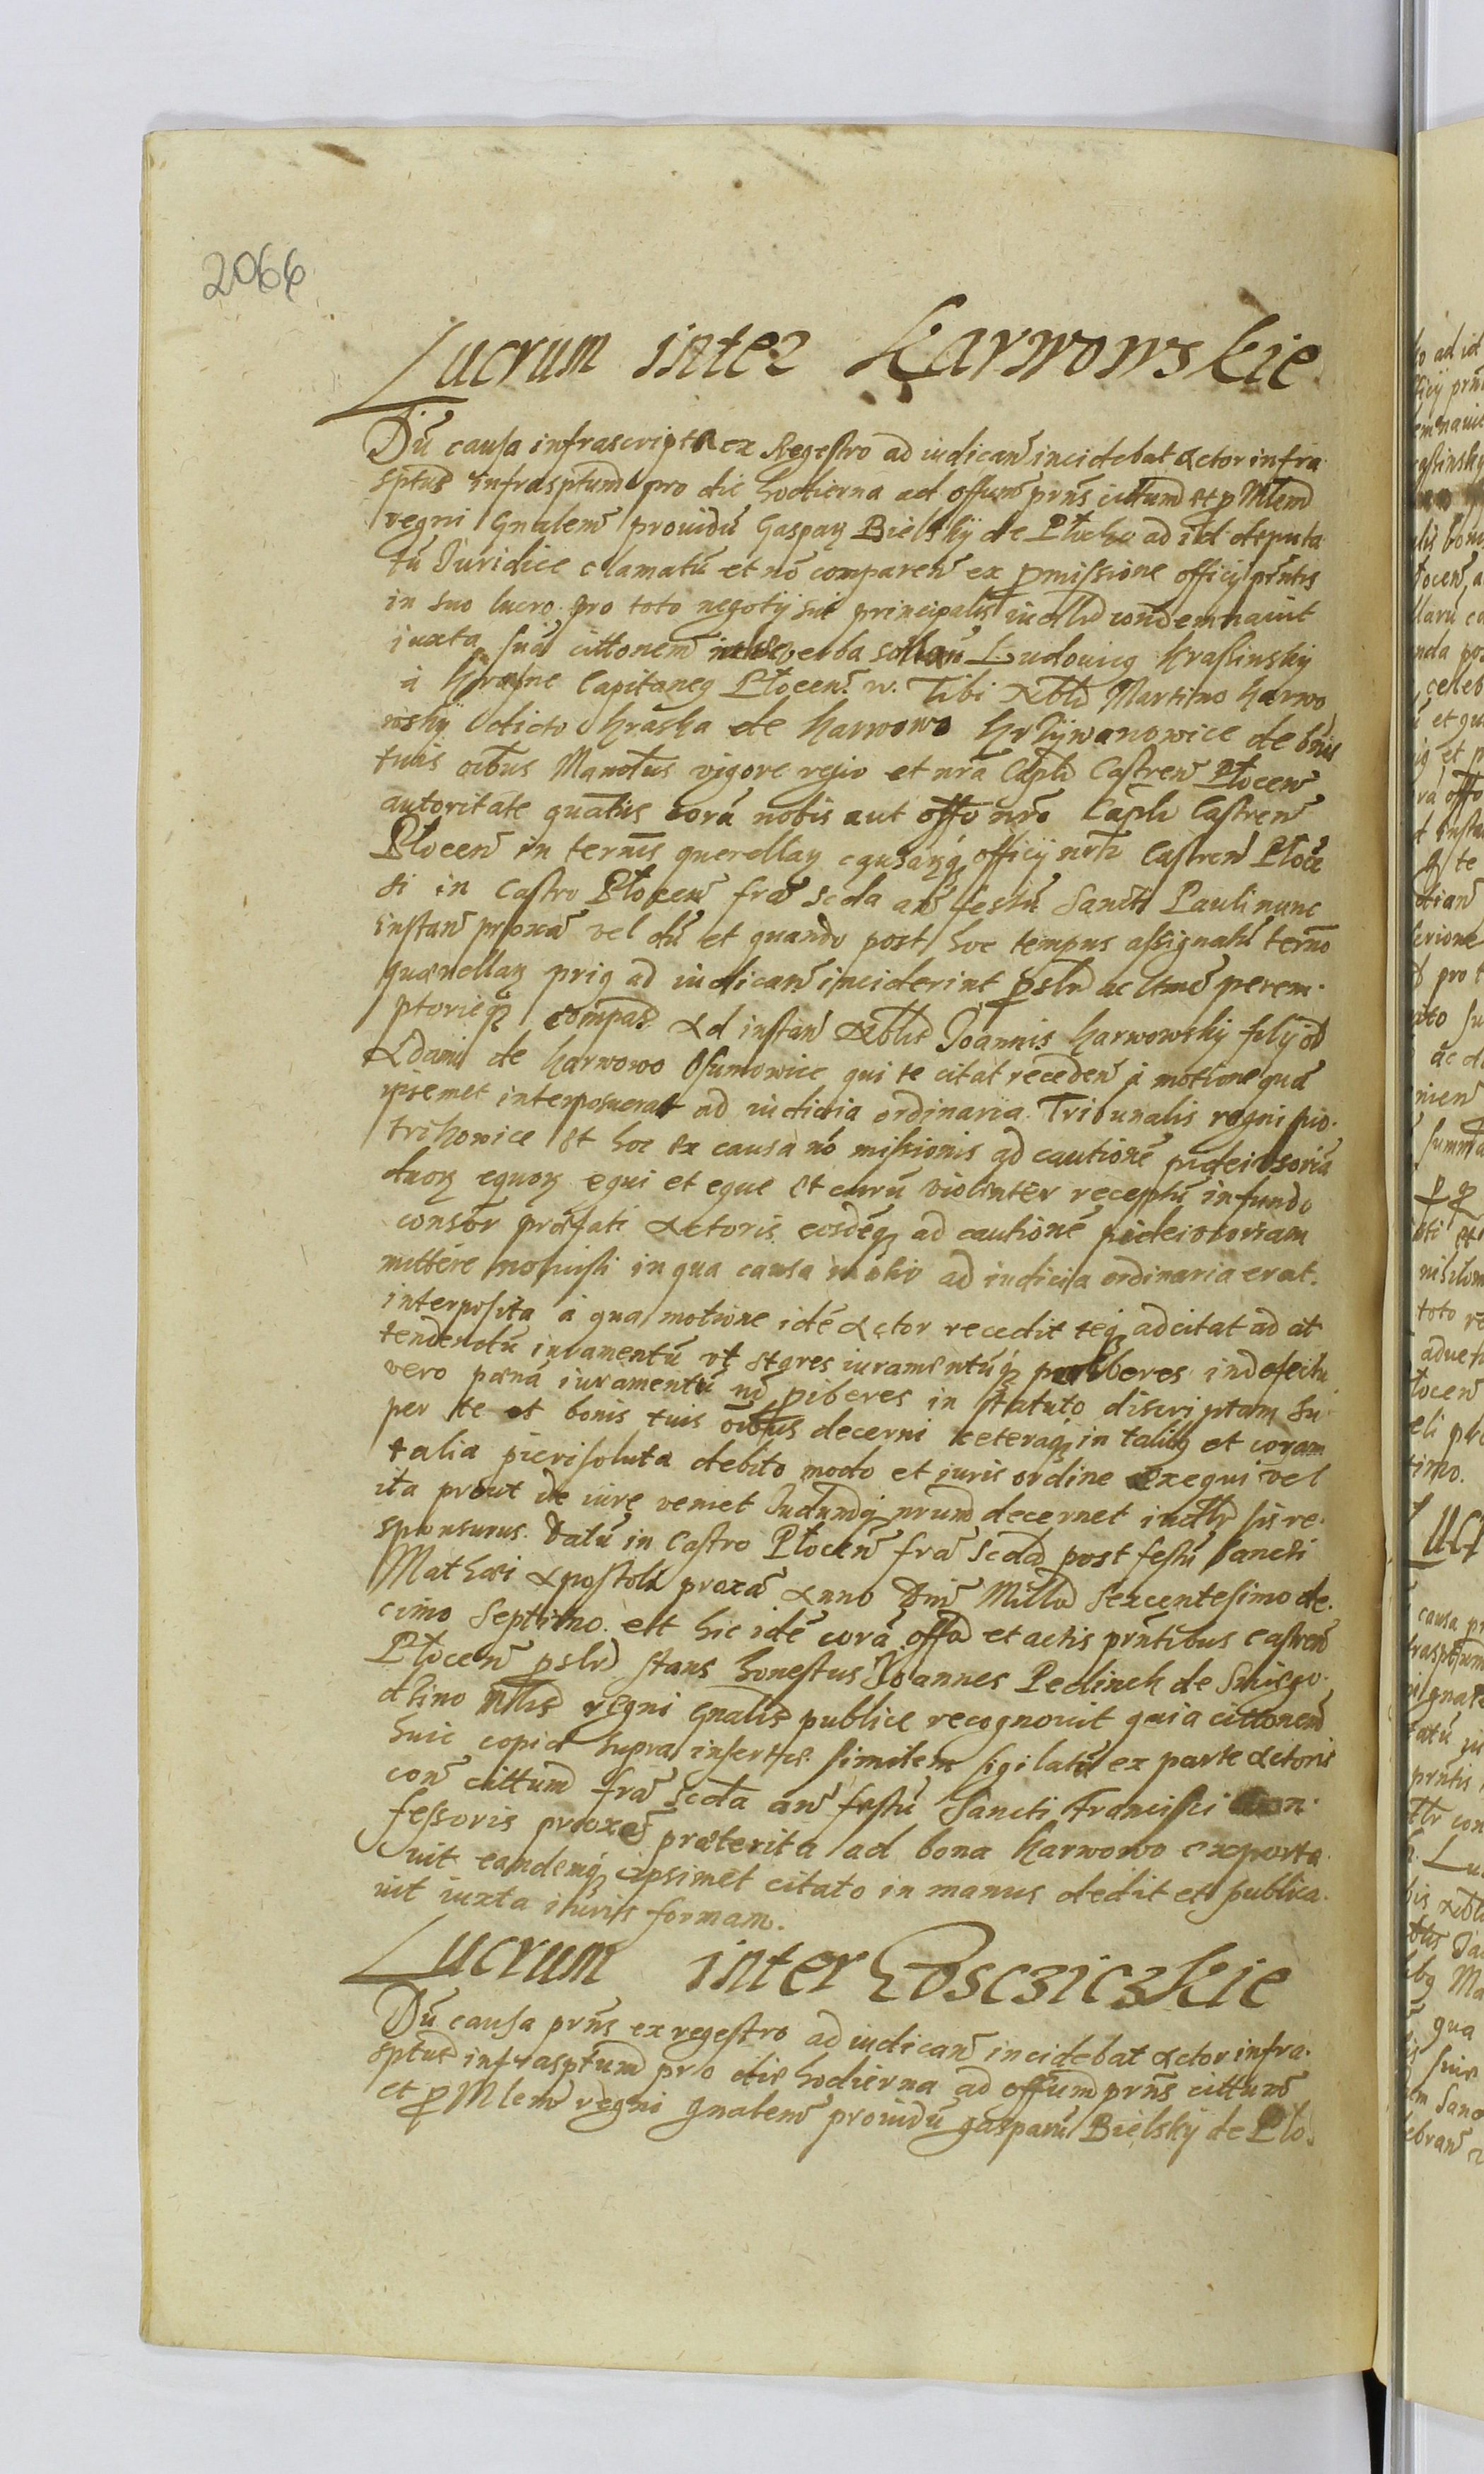 2066
Lucrum inter Karwowskie
Dū causa infrascripta ex Regestro ad iudicañ incidebat Actor infra
sptus infrasptum pro die hodierna ad offum prñs cittum et p Mlem
regni Gnalem prouidū Gaspar Bielskÿ de Płocko ad id deputa
tū Juridice clamatū et nō comparen ex pmissione officÿ prñtis
in suo lucro pro toto negotÿ sui principalis iudlr condemnauit
iuxta suā cittonem verba Ludouicq Krassinskÿ
à Krasne Capitaneq Płocen. Tibi Nbli Martino Karwo
wskÿ dicto Kraska de Karwowo Krzÿwanowice de bonis
tuis oibus Mandtus vigore regio et nrā Capli Castren Płocen
autoritate quatus corā nobis aut offo nro Capli Castren
Płocen in termis querellaꝝ causarꝝq officÿ nri Castren Płoce
si in Castro Płocen fra scda an festū Sancti Pauli nunc
instan proxa vel dū et quando post hoc tempus assignatū termo
quærellaꝝ priq ad iudican inciderint pslr ac ltme perem.
ptorieq compas Ad instan Nblis Joannis Karwowskÿ filÿ od
Adami de Karwowo Osumowice qui te citat receden à motione quā
ipsemet interposuerat ad iudicia ordinaria Tribunalis regni pio.
trkowice et hoc ex causa nō missionis ad cautionē fideiusoriā
duoꝝ equoꝝ equi et eque et currū violenter receptū in fundo
consor præfati Actoris eosdēq ad cautionē fideiusoriam
mittere noluisti in qua causa motio ad iudicia ordinaria erat.
interposita à qua motione idē Actor recedit teq adcitat ad at
tendendū iuramentū vt stares iuramentūq phiberes in defectu
vero pænā iuramentū nō phiberes in statuto discriptam su
per te et bonis tuis oibus decerni ceteraq in talibq et coram
talia fieri soluta debito modo et iuris ordine exequi vel
ita prout de iure veniet Judumq nrum decernet iudlr sis re.
sponsurus. Datū in Castro Płocen fra Scda post festū Sancti
Mathæi Apostoli proxa Anno Dni Millo Sexcentesimo de.
cimo Septimo. Et hic idē corā offo et actis prntibus castren
Płocen pslr stans honestus Joannes Pedinek de Smiego.
dzino Mlis regni Gnalis publice recognouit quia cittonem
huic copiæ supra insertæ similem sigilatā ex parte Actoris
con cittum fra scda an festū Sancti Francisci con.
fessoris proxa præterita ad bona Karwowo exporta.
uit eandemq ipsimet citato in manus dedit et publica.
uit iuxta iuris formam.
Lucrum inter Goscziczkie
Dū causa prñs ex regestro ad iudican incidebat Actor infra.
sptus infrasptum pro die hodierna ad offum prñs cittum
et p Mlem regni Gnalem prouidū Gasparū Bielskÿ de Plo.